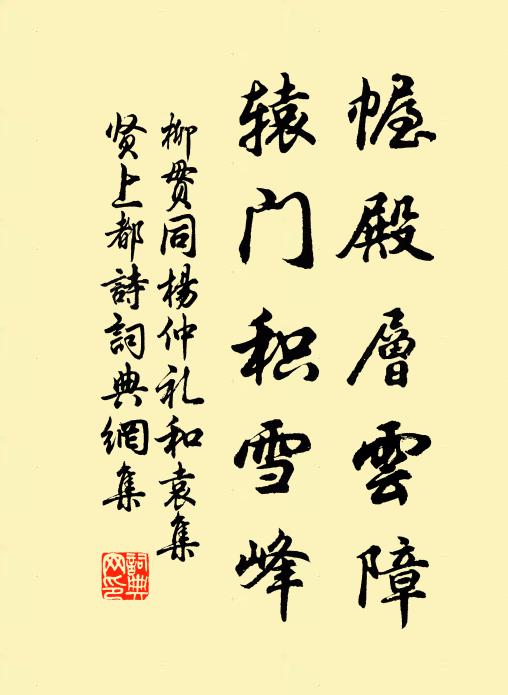 幄殿層雲障
辕门积雪峰
柳贯同楊仲礼和袁集
贤上都詩詞典網集
詞典網印